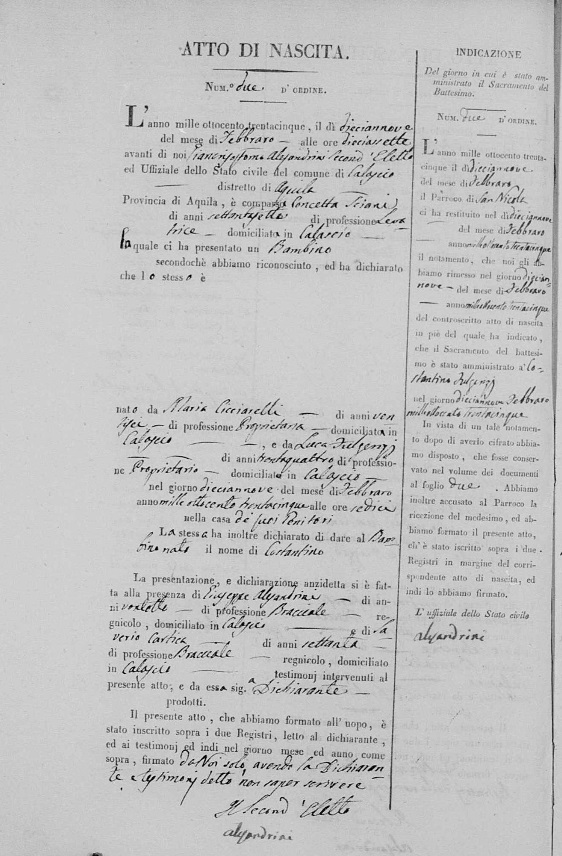 ATTO DI NASCITA.
Num.º due D'ORDINE.
L'anno mille ottocento trentacinque, il dì dieciannove
del mese di Febbraro — alle ore dieciassette
avanti di noi Alesandrini Second'Eletto
ed Uffiziale dello Stato civile del comune di Calascio
— distretto di Aquila
Provincia di Aquila, è comparsa Concetta
di anni settantasette di professione Leva
trice — domiciliata in Calascio —
la quale ci ha presentato un Bambino
secondochè abbiamo riconosciuto, ed ha dichiarato
che lo stesso è
nato da Maria Cicciarelli — di anni ven
— di professione Proprietaria — domiciliata in
Calascio — , e da Luca Fulgenzj
— di anni trentaquattro di professio-
ne Proprietario — domiciliato in Calascio —
nel giorno dieciannove del mese di Febbraro
anno mille ottocento trentacinque alle ore sedici
nella casa de' suoi Genitori
La stessa ha inoltre dichiarato di dare al Bam-
bino nato il nome di Costantino
La presentazione, e dichiarazione anzidetta si è fat-
ta alla presenza di Giuseppe Alesandrini — di an-
ni ventotto — di professione Bracciale — re-
gnicolo, domiciliato in Calascio — e di Sa
verio Cartica — di anni settanta —
di professione Bracciale — regnicolo, domiciliato
in Calascio — testimonj intervenuti al
presente atto, e da essa sig.a Dichiarante —
prodotti.
Il presente atto, che abbiamo formato all'uopo, è
stato inscritto sopra i due Registri, letto al dichiarante,
ed ai testimonj ed indi nel giorno mese ed anno come
sopra, firmato da Noi solo, avendo la Dichiaran-
te e testimonj detto non saper scrivere
Il Second'Eletto
Alesandrini
INDICAZIONE
Del giorno in cui è stato am-
ministrato il Sacramento del
Battesimo.
Num. due D'ORDINE.
L'anno mille ottocento trenta-
cinque il dì dieciannove
del mese di Febbraro
il Parroco di San Nicola
ci ha restituito nel dì dieciannove
— del mese di Febbraro
— anno mille ottocento trentacinque
il notamento, che noi gli ab-
biamo rimesso nel giorno diecian-
nove — del mese di Febbraro
— anno mille ottocento trentacinque
del controscritto atto di nascita
in piè del quale ha indicato,
che il Sacramento del battesi-
mo è stato amministrato a Co-
stantino Fulgenzj
nel giorno dieciannove Febbraro
mille ottocento trentacinque
In vista di un tale notamento
dopo di averlo cifrato abbia-
mo disposto, che fosse conser-
vato nel volume dei documenti
al foglio due. Abbiamo
inoltre accusato al Parroco la
ricezione del medesimo, ed ab-
biamo formato il presente atto,
ch'è stato iscritto sopra i due
Registri in margine del corri-
spondente atto di nascita, ed
indi lo abbiamo firmato.
L'uffiziale dello Stato civile
Alesandrini